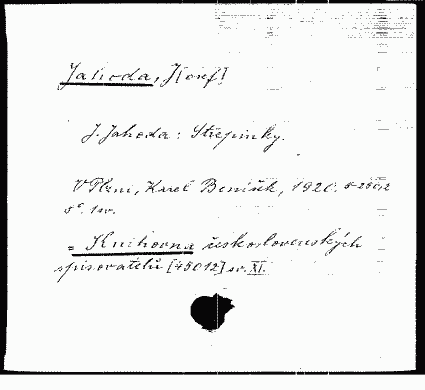 Jahoda, J[osef]
J. Jahoda: Střepinky.
V Plzni, Karel Beníšek, 1920.
8°. 1 sv.
= Knihovna československých
spisovatelů [45012] sv. XI.